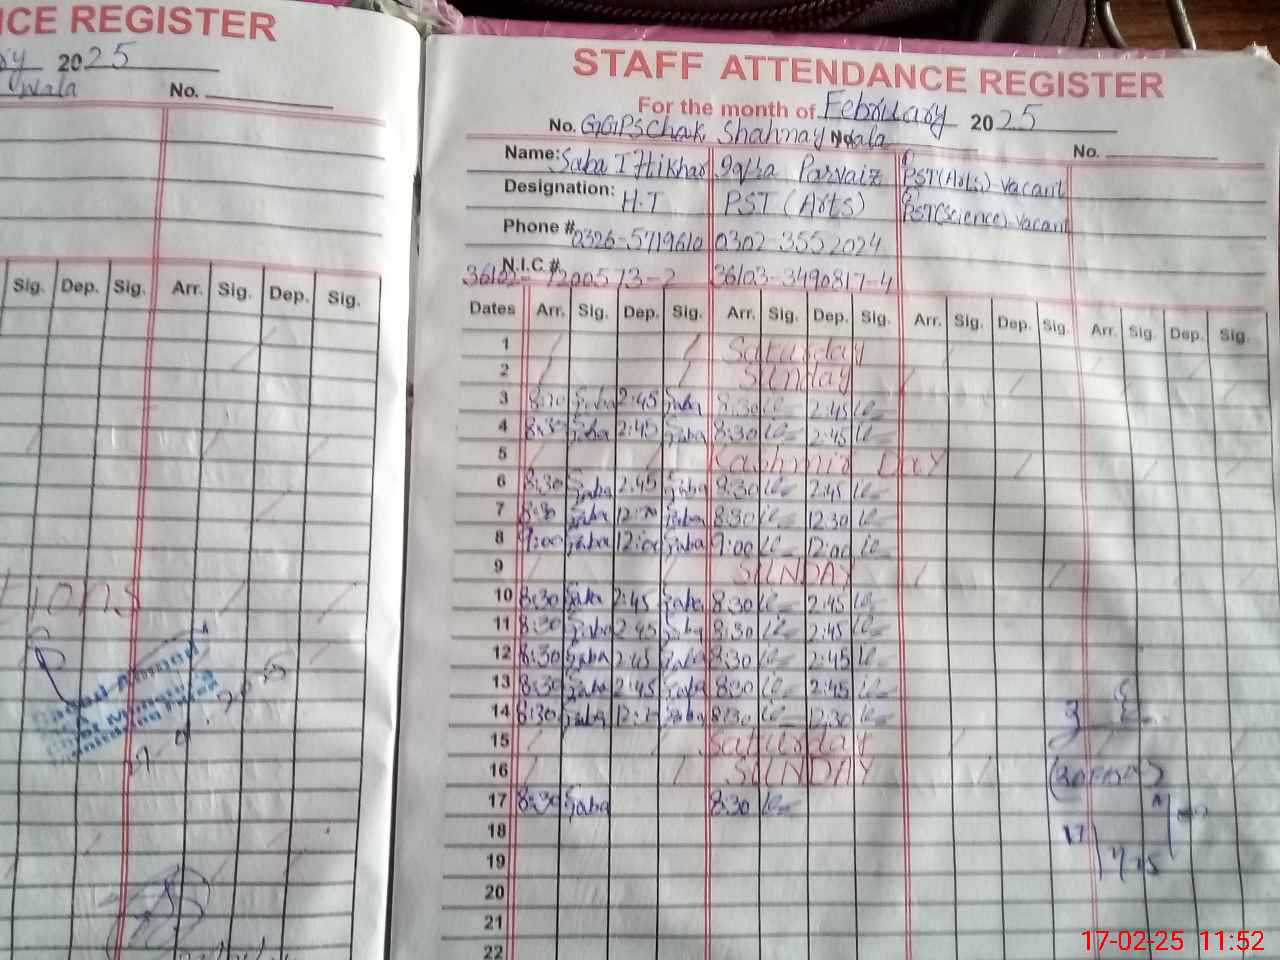 CE REGISTER
2025
wala No.
Sig. Dep. Sig. Arr. Sig. Dep. Sig.
tions
STAFF ATTENDANCE REGISTER
For the month of February 2025
No. GGPS Chak Shahnay Wala No.
Name: Saba Iftikhar Iqra Parvaiz PST(Arts)-vacant
Designation: H.T PST (Arts) PST(Science)-vacant
Phone # 0326-5719610 0302-3552024
N.I.C # 36103-3490817-4
Dates Arr. Sig. Dep. Sig. Arr. Sig. Dep. Sig. Arr. Sig. Dep. Sig. Arr. Sig. Dep. Sig.
1 Saturday
2 Sunday
3 8:30 Saba 2:45 Saba 8:30 2:45
4 8:30 Saba 2:45 Saba 8:30 2:45
5 Kashmir Day
6 8:30 Saba 2:45 Saba 8:30 2:45
7 8:30 Saba 12:30 Saba 8:30 12:30
8 9:00 Saba 12:00 Saba 9:00 12:00
9 SUNDAY
10 8:30 Saba 2:45 Saba 8:30 2:45
11 8:30 Saba 2:45 Saba 8:30 2:45
12 8:30 Saba 2:45 Saba 8:30 2:45
13 8:30 Saba 2:45 Saba 8:30 2:45
14 8:30 Saba 12:30 Saba 8:30 12:30
15 Saturday
16 SUNDAY
17 8:30 Saba 8:30
18
19
20
21
22
17-02-25 11:52